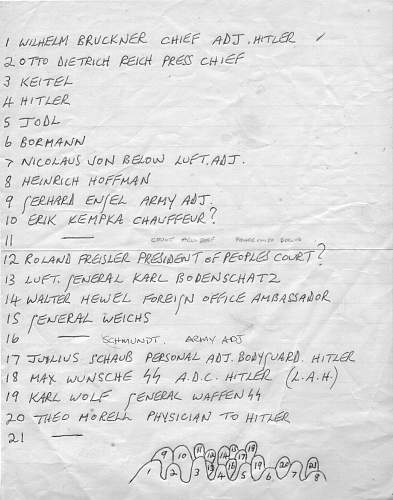 1 WILHELM BRUCKNER CHIEF ADJ. HITLER
2 OTTO DIETRICH REICH PRESS CHIEF
3 KEITEL
4 HITLER
5 JODL
6 BORMANN
7 NICOLAUS VON BELOW LUFT. ADJ.
8 HEINRICH HOFFMAN
9 GERHARD ENGEL ARMY ADJ.
10 ERIK KEMPKA CHAUFFEUR?
11 —
12 ROLAND FREISLER PRESIDENT OF PEOPLES COURT?
13 LUFT. GENERAL KARL BODENSCHATZ
14 WALTER HEWEL FOREIGN OFFICE AMBASSADOR
15 GENERAL WEICHS
16 — SCHMUNDT. ARMY ADJ
17 JULIUS SCHAUB PERSONAL ADJ. BODYGUARD. HITLER
18 MAX WUNSCHE SS A.D.C. HITLER (L.A.H)
19 KARL WOLF GENERAL WAFFEN SS
20 THEO MORELL PHYSICIAN TO HITLER
21 —
9 10 11 12 14 15 17 18
1 2 3 13 4 16 5 19 6 20 7 21 8